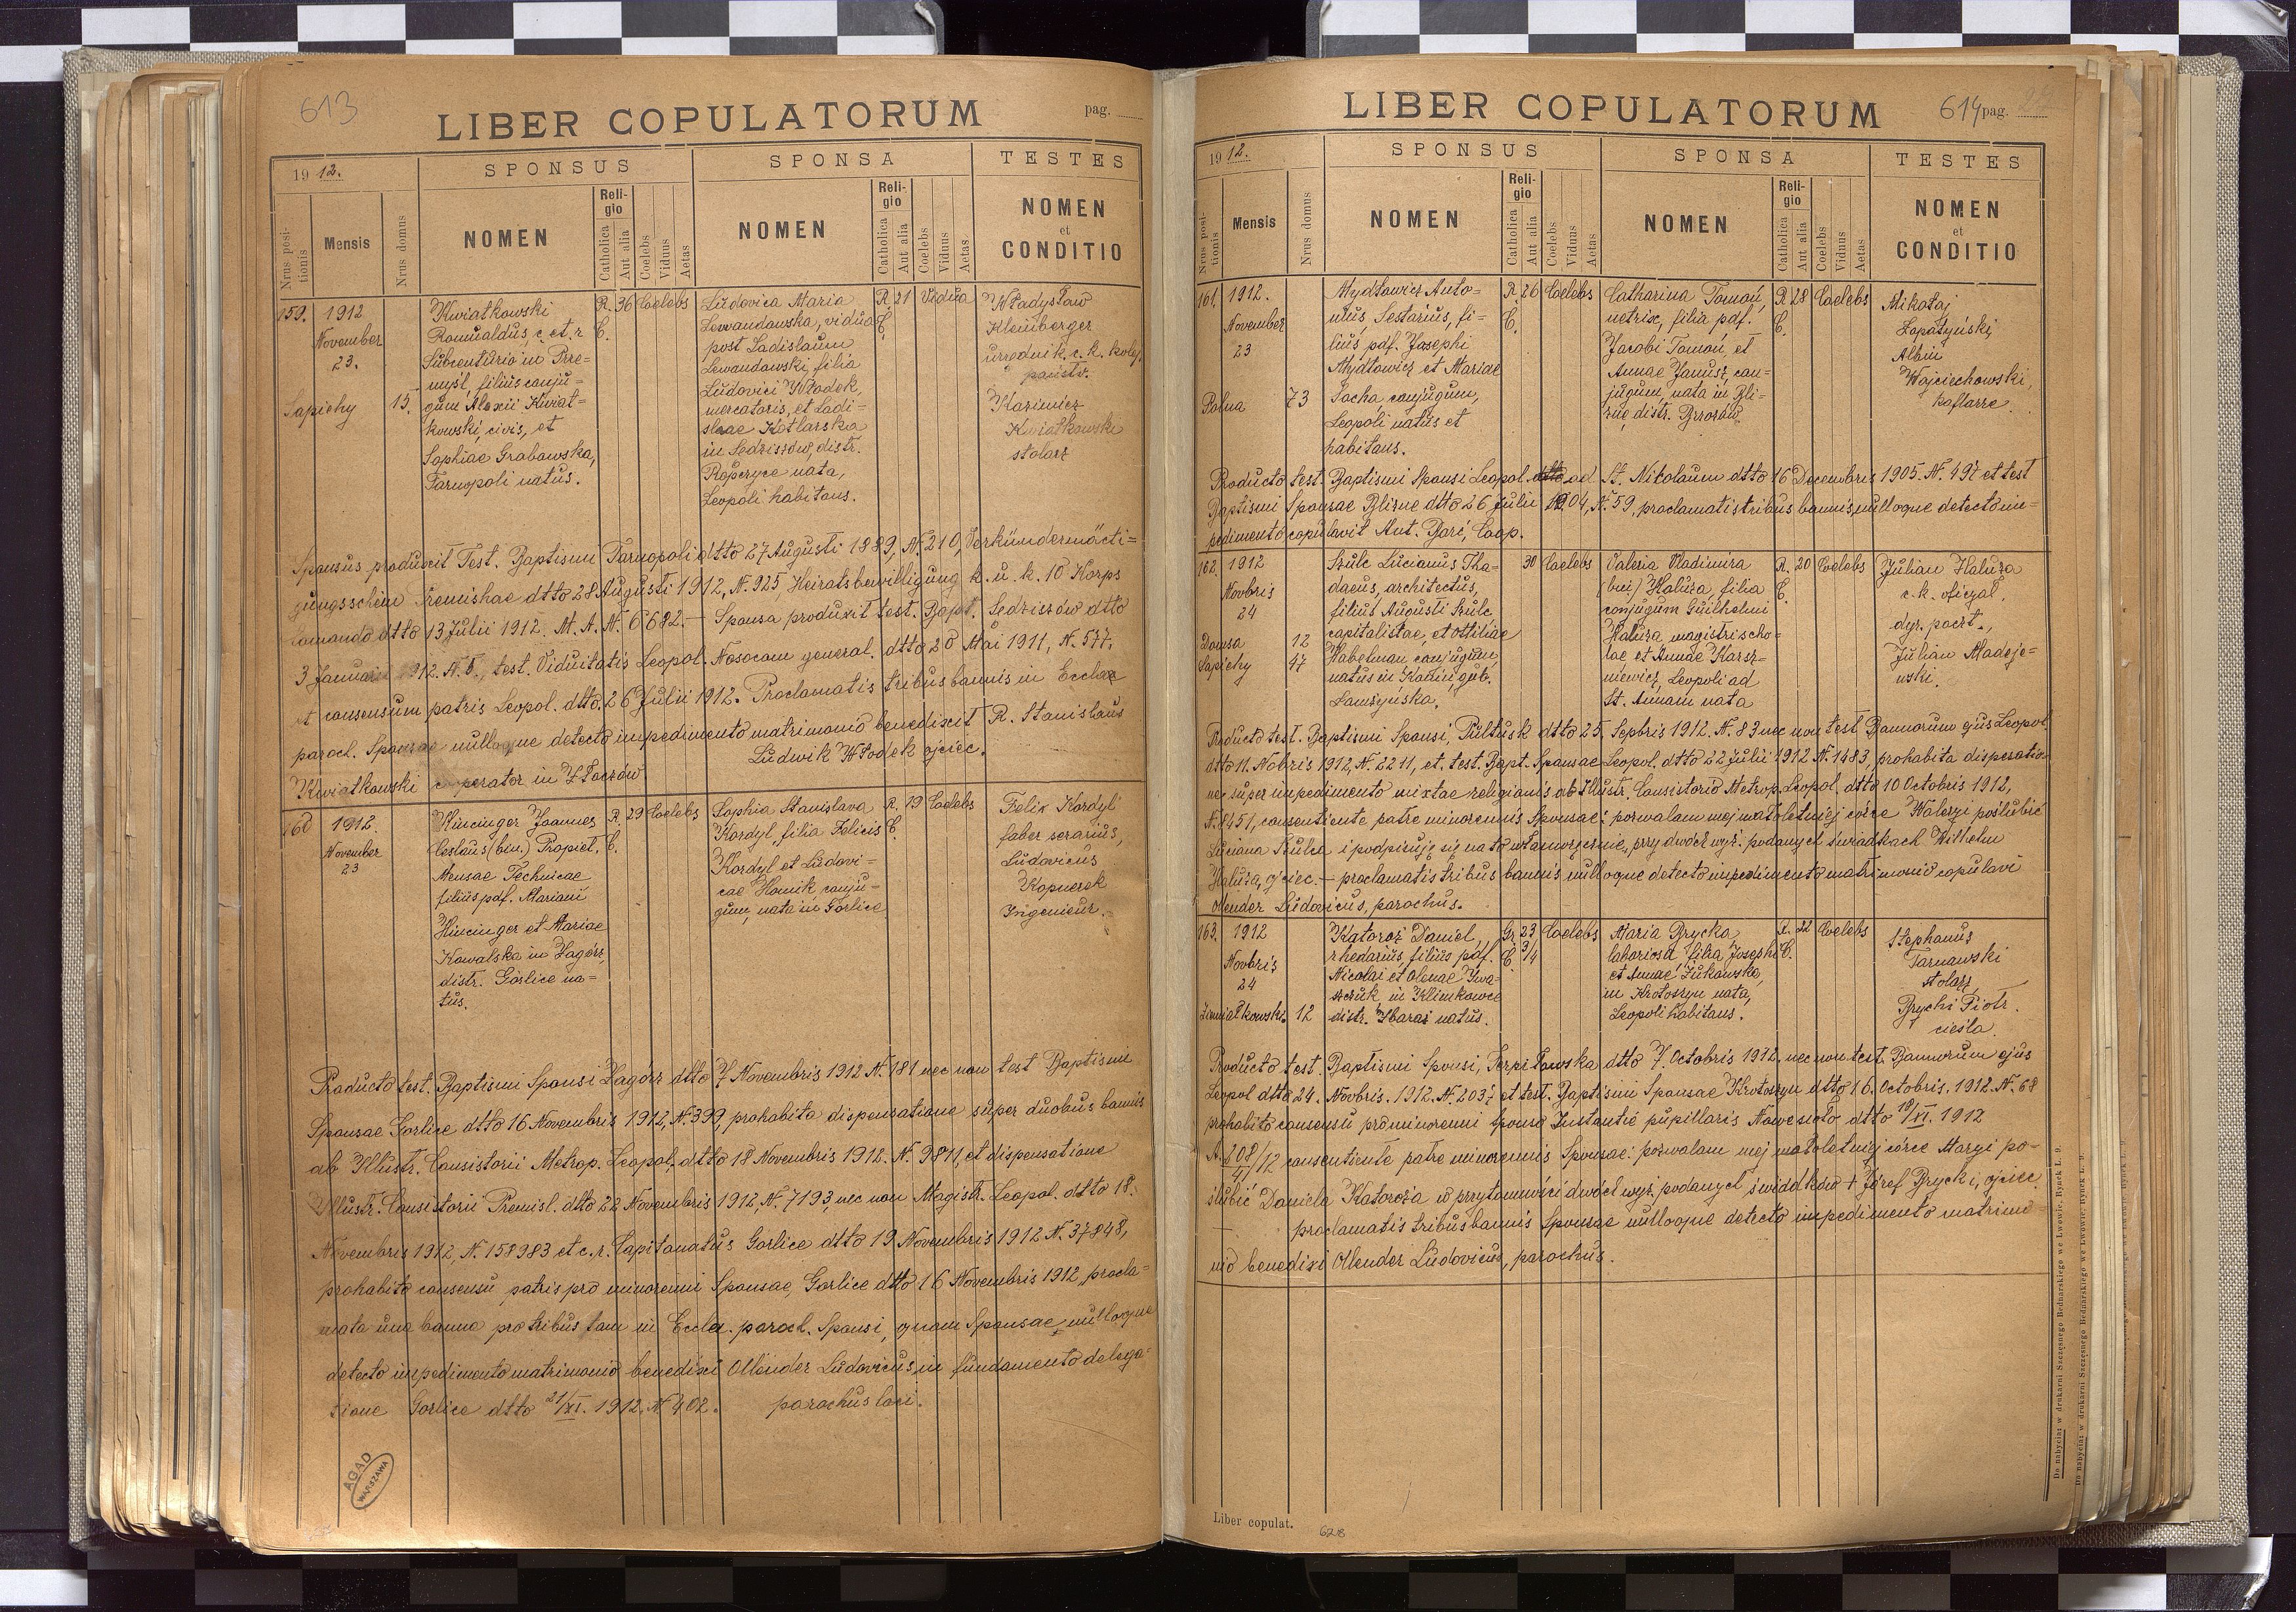 613
LIBER COPULATORUM
pag.
1912.
SPONSUS
SPONSA
TESTES
Nrus positionis
Mensis
Nrus domus
NOMEN
Religio
Catholica
Aut alia
Coelebs
Viduus
Aetas
NOMEN
Religio
Catholica
Aut alia
Coelebs
Viduus
Aetas
NOMEN
et
CONDITIO
159.
1912
November
23.
Sapiehy
15.
Kwiatkowski
Romualdus, c. et. r
Subcenturio in Prze=
myśl, filius conju=
gum Alexii Kwiat=
kowski, civis, et
Sophiae Grabowska,
Tarnopoli natus.
R.
C.
36
Coelebs
Ludovica Maria
Lewandowska, vidua
post Ladislaum
Lewandowski, filia
Ludovici Włodek,
mercatoris, et Ladi=
slaae Kotlarska
in Sedziszów, distr.
Ropczyce nata,
Leopoli habitans.
R.
C.
21
Vidua
Władysław
Kleinberger
urzędnik c. k. kolej.
państw.
Kazimierz
Kwiatkowski
stolarz
Sponsus produxit Test. Baptismi Tarnopoli dtto 27 Augusti 1889, N. 210, Verkündermächti=
gungsschein Premishae dtto 28 Augusti 1912, N. 925, Heiratsbewilligung k. u. k. 10 Korps
comando dtto 13 Julii 1912. M. A. N. 6682. — Sponsa produxit test. Bapt. Sedziszów dtto
3 Januarii 1912. N. 5., test. Viduitatis Leopol. Nosocom general. dtto 20 Mai 1911, N. 577.
et consensum patris Leopol. dtto. 26 Julii 1912. Proclamatis tribus bannis in Eccla
paroch. Sponsae nulloque detecto impedimento matrimonio benedixit R. Stanislaus
Kwiatkowski cooperator in Złoczów.
Ludwik Włodek ojciec.
160
1912.
November
23
Hincinger Joannes
Ceslaus (bin.) Propiet.
Mensae Technicae
filius pdf. Mariani
Hincinger et Mariae
Kowalska in Zagórz,
distr. Gorlice na=
tus.
R.
C.
29
Coelebs
Sophia Stanislava
Kordyl, filia Felicis
Kordyl et Ludovi=
cae Homik conju=
gum, nata in Gorlice
R.
C.
19
Coelebs
Felix Kordyl
faber serarius,
Ludovicus
Kopnerek
Ingenieur.
Producto test. Baptismi Sponsi Zagórz dtto 7 Novembris 1912 N. 181 nec non test Baptismi
Sponsae Gorlice dtto 16 Novembris 1912, N. 399, prohabita dispensatione super duobus bannis
ab Illustr. Consistorii Metrop. Leopol. dtto 18 Novembris 1912. N. 9811, et dispensatione
Illustr. Consistorii Premisl. dtto 22 Novembris 1912, N. 7193, nec non Magistr. Leopol. dtto 18.
Novembris 1912, N. 158983 et c. r. Capitanatus Gorlice dtto 19 Novembris 1912 N. 37848,
prohabito consensu patris pro minorenni Sponsae, Gorlice dtto 16 Novembris 1912, procla=
mata una banno pro tribus tam in Eccla. paroch. Sponsi, quam Sponsae nulloque
detecto impedimento matrimonio benedixi Ollender Ludovicus, in fundamento delega=
tione Gorlice dtto 21/XI. 1912. N 402. parochus loci.
AGAD
WARSZAWA
LIBER COPULATORUM
614 pag.
1912.
SPONSUS
SPONSA
TESTES
Nrus positionis
Mensis
Nrus domus
NOMEN
Religio
Catholica
Aut alia
Coelebs
Viduus
Aetas
NOMEN
Religio
Catholica
Aut alia
Coelebs
Viduus
Aetas
NOMEN
et
CONDITIO
161.
1912.
November
23
Polna
73
Mydłowicz Anto=
nius, Sestarius, fi=
lius pdf. Josephi
Mydłowicz et Mariae
Socha conjugum,
Leopoli natus et
habitans.
R.
C.
26
Coelebs
Catharina Tomoń,
netrix, filia pdf.
Jacobi Tomoń, et
Annae Janusz, con=
jugum, nata in Bli=
zne, distr. Brzozów.
R.
C.
28
Coelebs
Mikołaj
Łopatyński,
Albin
Wojciechowski,
kaflarze.
Producto test. Baptismi Sponsi Leopol. ad St. Nicolaum dtto 16 Decembris 1905. N. 497 et test
Baptismi Sponsae Blizne dtto 26 Julii 1904, N. 59, proclamatis tribus bannis, nulloque detecto im=
pedimento copulavit Ant. Bare, Coop.
162.
1912
Novbris
24
Domsa
12
Sapiehy
47
Szulc Lucianus Tha=
daeus, architectus,
filius Augusti Szulc,
capitalistae, et Ottiliae
Habelman conjugum
natus in Kadin, gub.
Łomżyńska.
30
Coelebs
Valeria Vladimira
(bin.) Haluza, filia
conjugum Guilhelmi
Haluza magistri scho=
lae et Annae Karsz=
niewicz, Leopoli ad
St. Annam nata
R.
C.
20
Coelebs
Julian Haluza
c. k. oficyał.
dyr. poczt.,
Julian Madeje=
wski.
Producto test. Baptismi Sponsi, Pultusk dtto 25. Sepbris 1912. N. 83 nec non test Bannorum ejus Leopol
dtto 11. Nobris 1912, N. 2211, et. test. Bapt. Sponsae Leopol. dtto 22 Julii 1912 N. 1483, prohabita dispensatio
ne super impedimento mixtae religionis ab Illustr. Consistorio Metrop. Leopol. dtto 10 Octobris 1912,
N. 8451, consentiente patre minorennis Sponsae: pozwalam mej małoletniej córce Waleryi poślubić
Luciana Szulca i podpisuję się na to własnoręcznie, przy dwóch wyż. podanych świadkach Wilhelm
Haluza, ojciec. — proclamatis tribus bannis nulloque detecto impedimento matrimonio copulavi
Ollender Ludovicus, parochus.
163.
1912
Novbris
24
12
Katoroż Daniel,
rhedarius, filius pdf.
Nicolai et Olenae Iwa=
szczuk in Klimkowce
distr. Zbaraż natus.
Gr.
C.
23
3/4
Coelebs
Maria Brycka
laboriosa, filia Josephi
et Annae Żukowska,
in Krotoszyn nata,
Leopoli habitans.
R.
C.
22
Coelebs
Stephanus
Tarnawski
stolarz,
Brycki Piotr.
cieśla.
Producto test. Baptismi Sponsi, dtto 7. Octobris 1912, nec non test. Bannorum ejus
Leopol dtto 24. Novbris. 1912. N. 2037 et test. Baptismi Sponsae Krotoszyn dtto 16. Octobris. 1912. N. 68
prohabito consensu pro minorenni sponso Instantiè pupillaris Nowesioło dtto 19/XI. 1912
consentiente patre minorennis Sponsae: pozwalam mej małoletniej córce Maryi po=
ślubić Daniela Katoroża w przytomności dwóch wyż podanych świadków + Józef Brycki, ojciec.
— proclamatis tribus bannis Sponsae nulloque detecto impedimento matrimo=
nio benedixi Ollender Ludovicus, parochus.
Liber copulat.
628
Do nabycia: w drukarni Szczęsnego Bednarskiego we Lwowie, Rynek L. 9.
Do nabycia: w drukarni Szczęsnego Bednarskiego we Lwowie, Rynek L. 9.